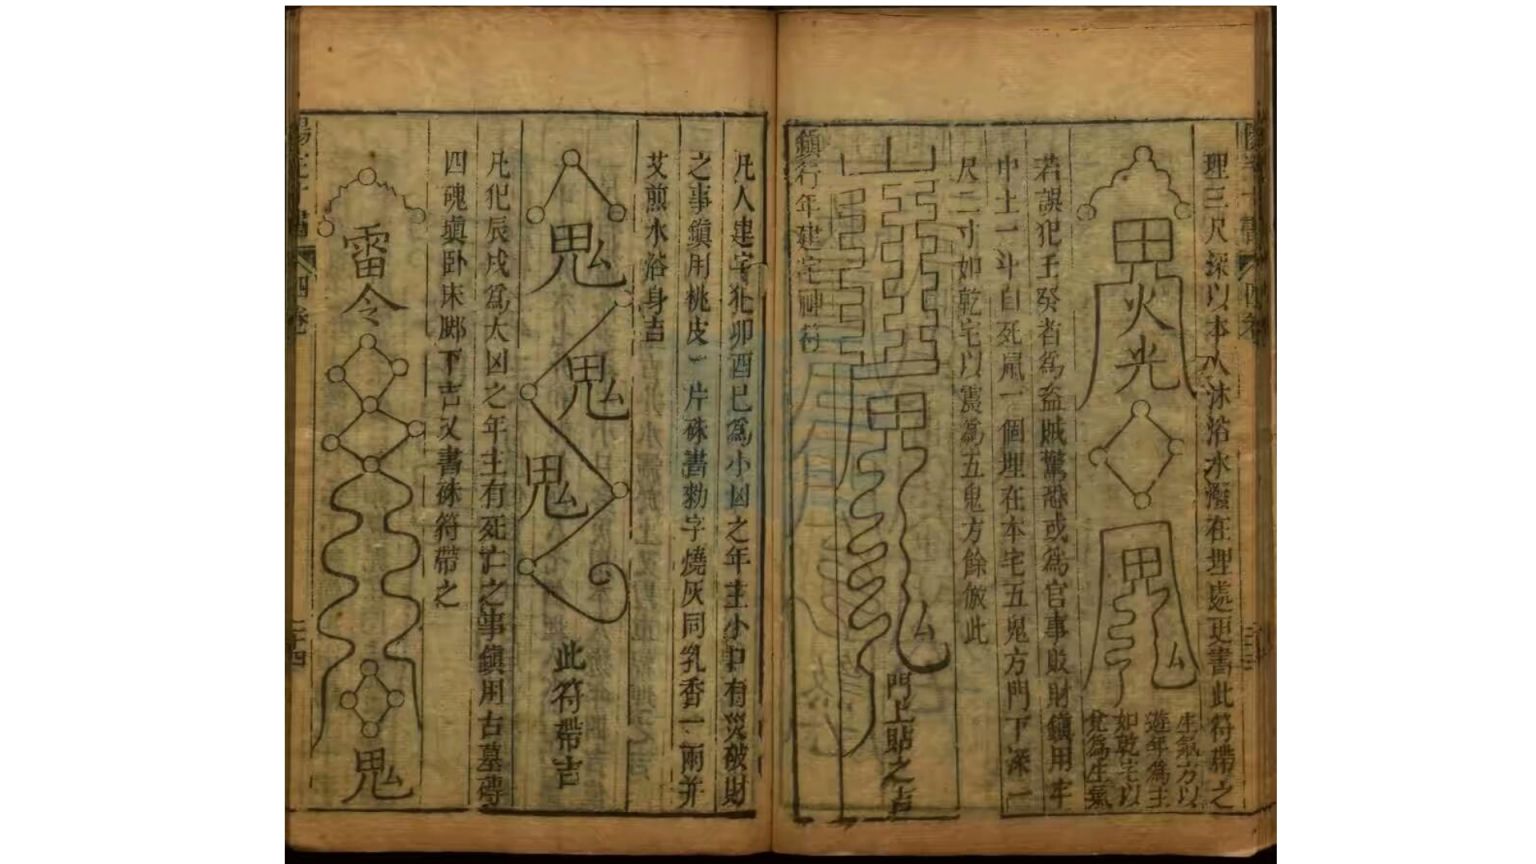 理三尺深以本人沐浴水潑在埋處更書此符帶之
田火光
鬼
生氣方以
遊年為主
如乾宅以
兌為生氣
若誤犯壬癸者為盜賊驚恐或為官事敗財鎮用牢
中土一斗白死鼠一個埋在本宅五鬼方門下深一
尺二寸如乾宅以震為五鬼方餘倣此
門上貼之吉
鎮行年建宅神符
凡人建宅犯卯酉巳為小凶之年主小口有災破財
之事鎮用桃皮一片硃書勑字燒灰同乳香一兩并
艾煎水浴身吉
鬼
鬼
鬼
此符帶吉
凡犯辰戌為大凶之年主有死亡之事鎮用古墓磚
四塊鎮卧床脚下吉又書硃符帶之
雷令
鬼
四卷
二十四